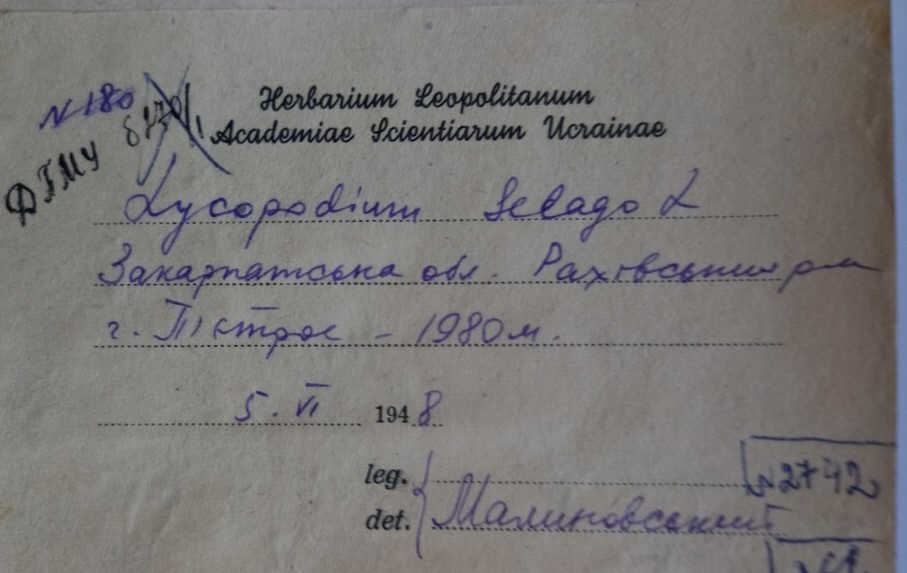 N 180
ДПМУ
Herbarium Leopolitanum
Academiae Scientiarum Ucrainae
Lycopodium Selago L
Закарпатська обл. Рахівський р-н
г. Пєтрос - 1980 м.
5. VI 1948
leg.
N 2742
det. Малиновський